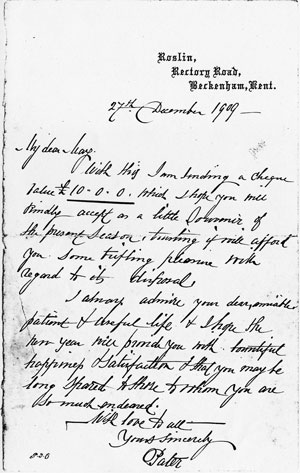 Roslin,
Rectory Road,
Beckenham, Kent.
27th December 1909
My dear May,
With this I am sending a cheque
value £10-0-0. which I hope you will
kindly accept as a little Souvenir of
the present Season, trusting it will afford
you some trifling pleasure with
regard to its disposal.
I always admire your dear, amiable
patient & careful life, & I hope the
new year will provide you with bountiful
happiness & Satisfaction & that you may be
long Spared to those to whom you are
so much endeared.
With love to all
Yours Sincerely
Pater